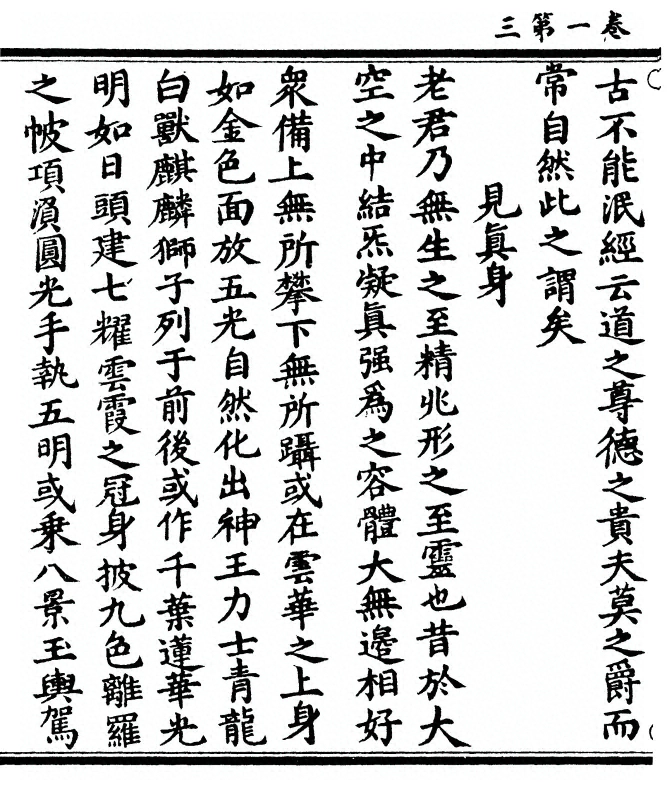 卷一第三
古不能泯經云道之尊德之貴夫莫之爵而
常自然此之謂矣
見眞身
老君乃無生之至精兆形之至靈也昔於大
空之中結炁凝眞强爲之容體大無邉相好
衆備上無所攀下無所躡或在雲華之上身
如金色面放五光自然化出神王力士青龍
白獸麒麟獅子列于前後或作千葉蓮華光
明如日頭建七耀雲霞之冠身披九色離羅
之帔項負圓光手執五明或乗八景玉輿駕